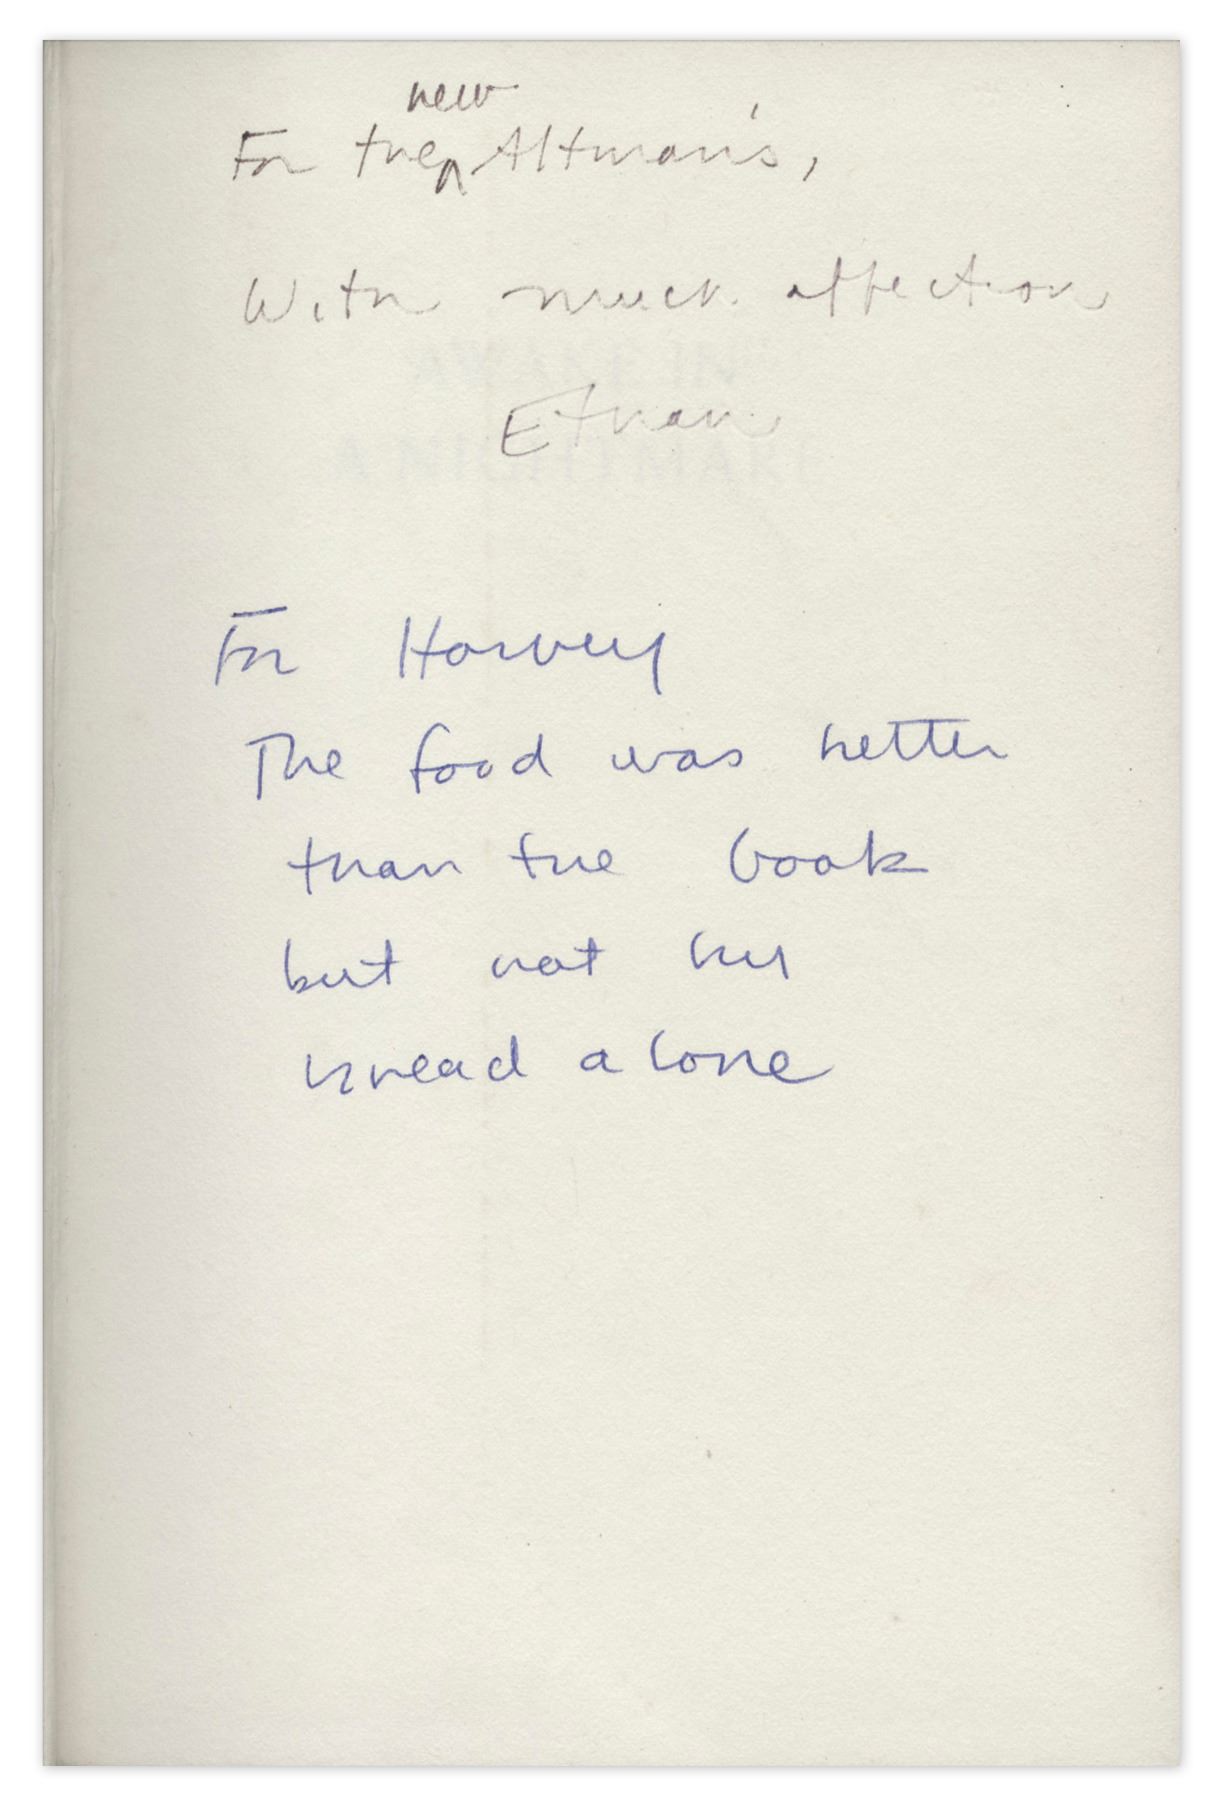 new
For the ^ Altman's,
With much affection
AWAKE IN
Ethan
A NIGHTMARE
For Harvey
The food was better
than the book
but not by
bread alone